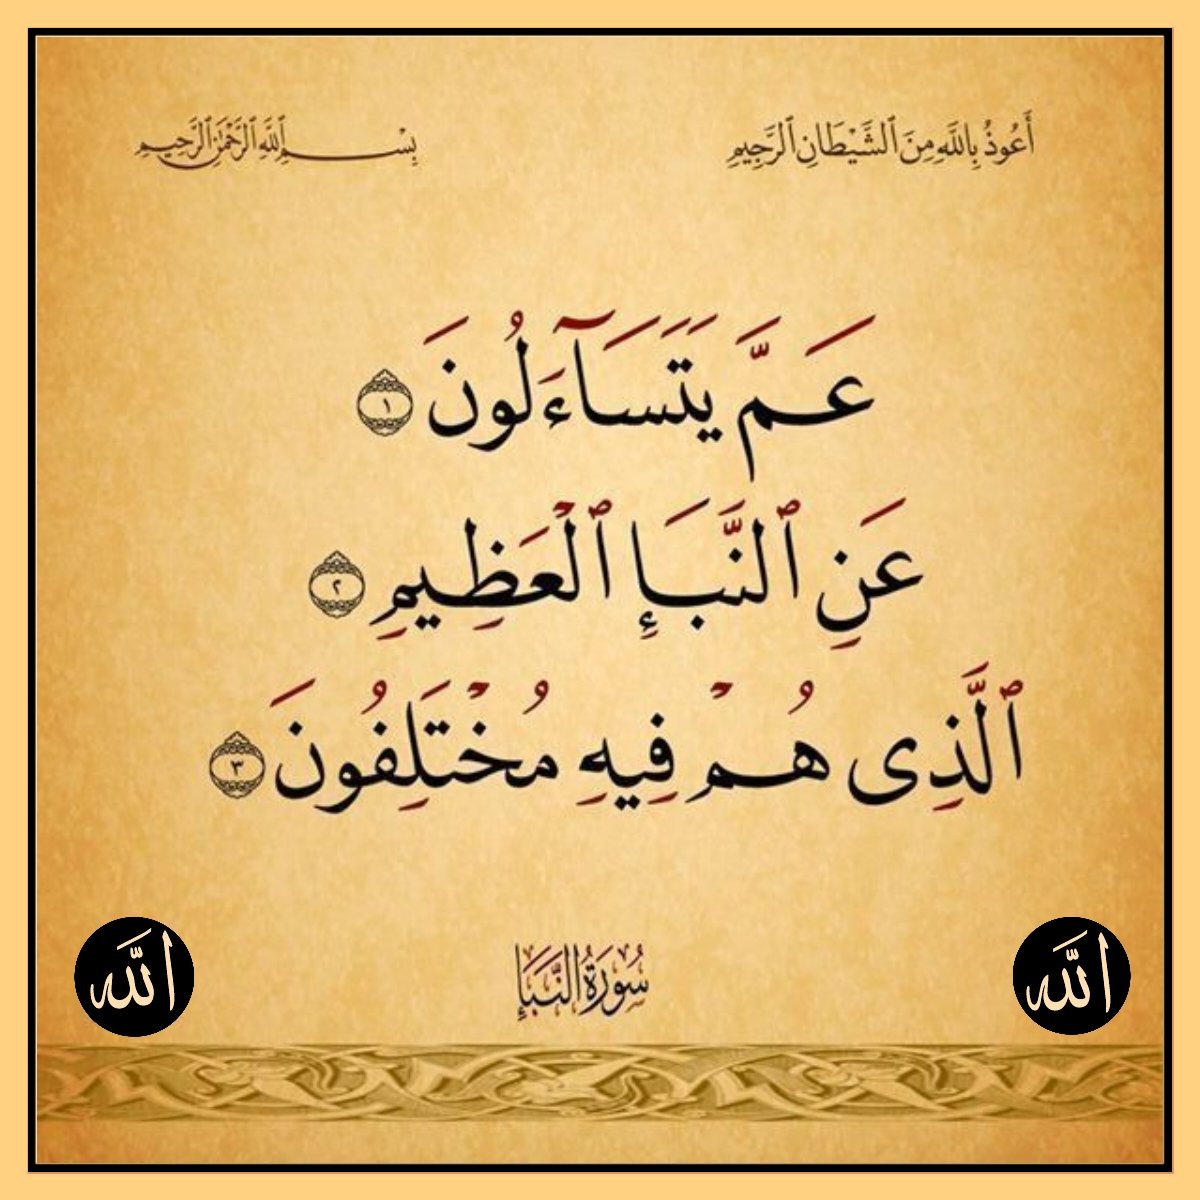 أَعُوذُ بِاللَّهِ مِنَ ٱلشَّيْطَانِ ٱلرَّجِيمِ
بِسْمِ ٱللَّهِ ٱلرَّحْمَٰنِ ٱلرَّحِيمِ
عَمَّ يَتَسَآءَلُونَ ١
عَنِ ٱلنَّبَإِ ٱلْعَظِيمِ ٢
ٱلَّذِى هُمْ فِيهِ مُخْتَلِفُونَ ٣
الله
الله
سُورَةُ النَّبَإِ